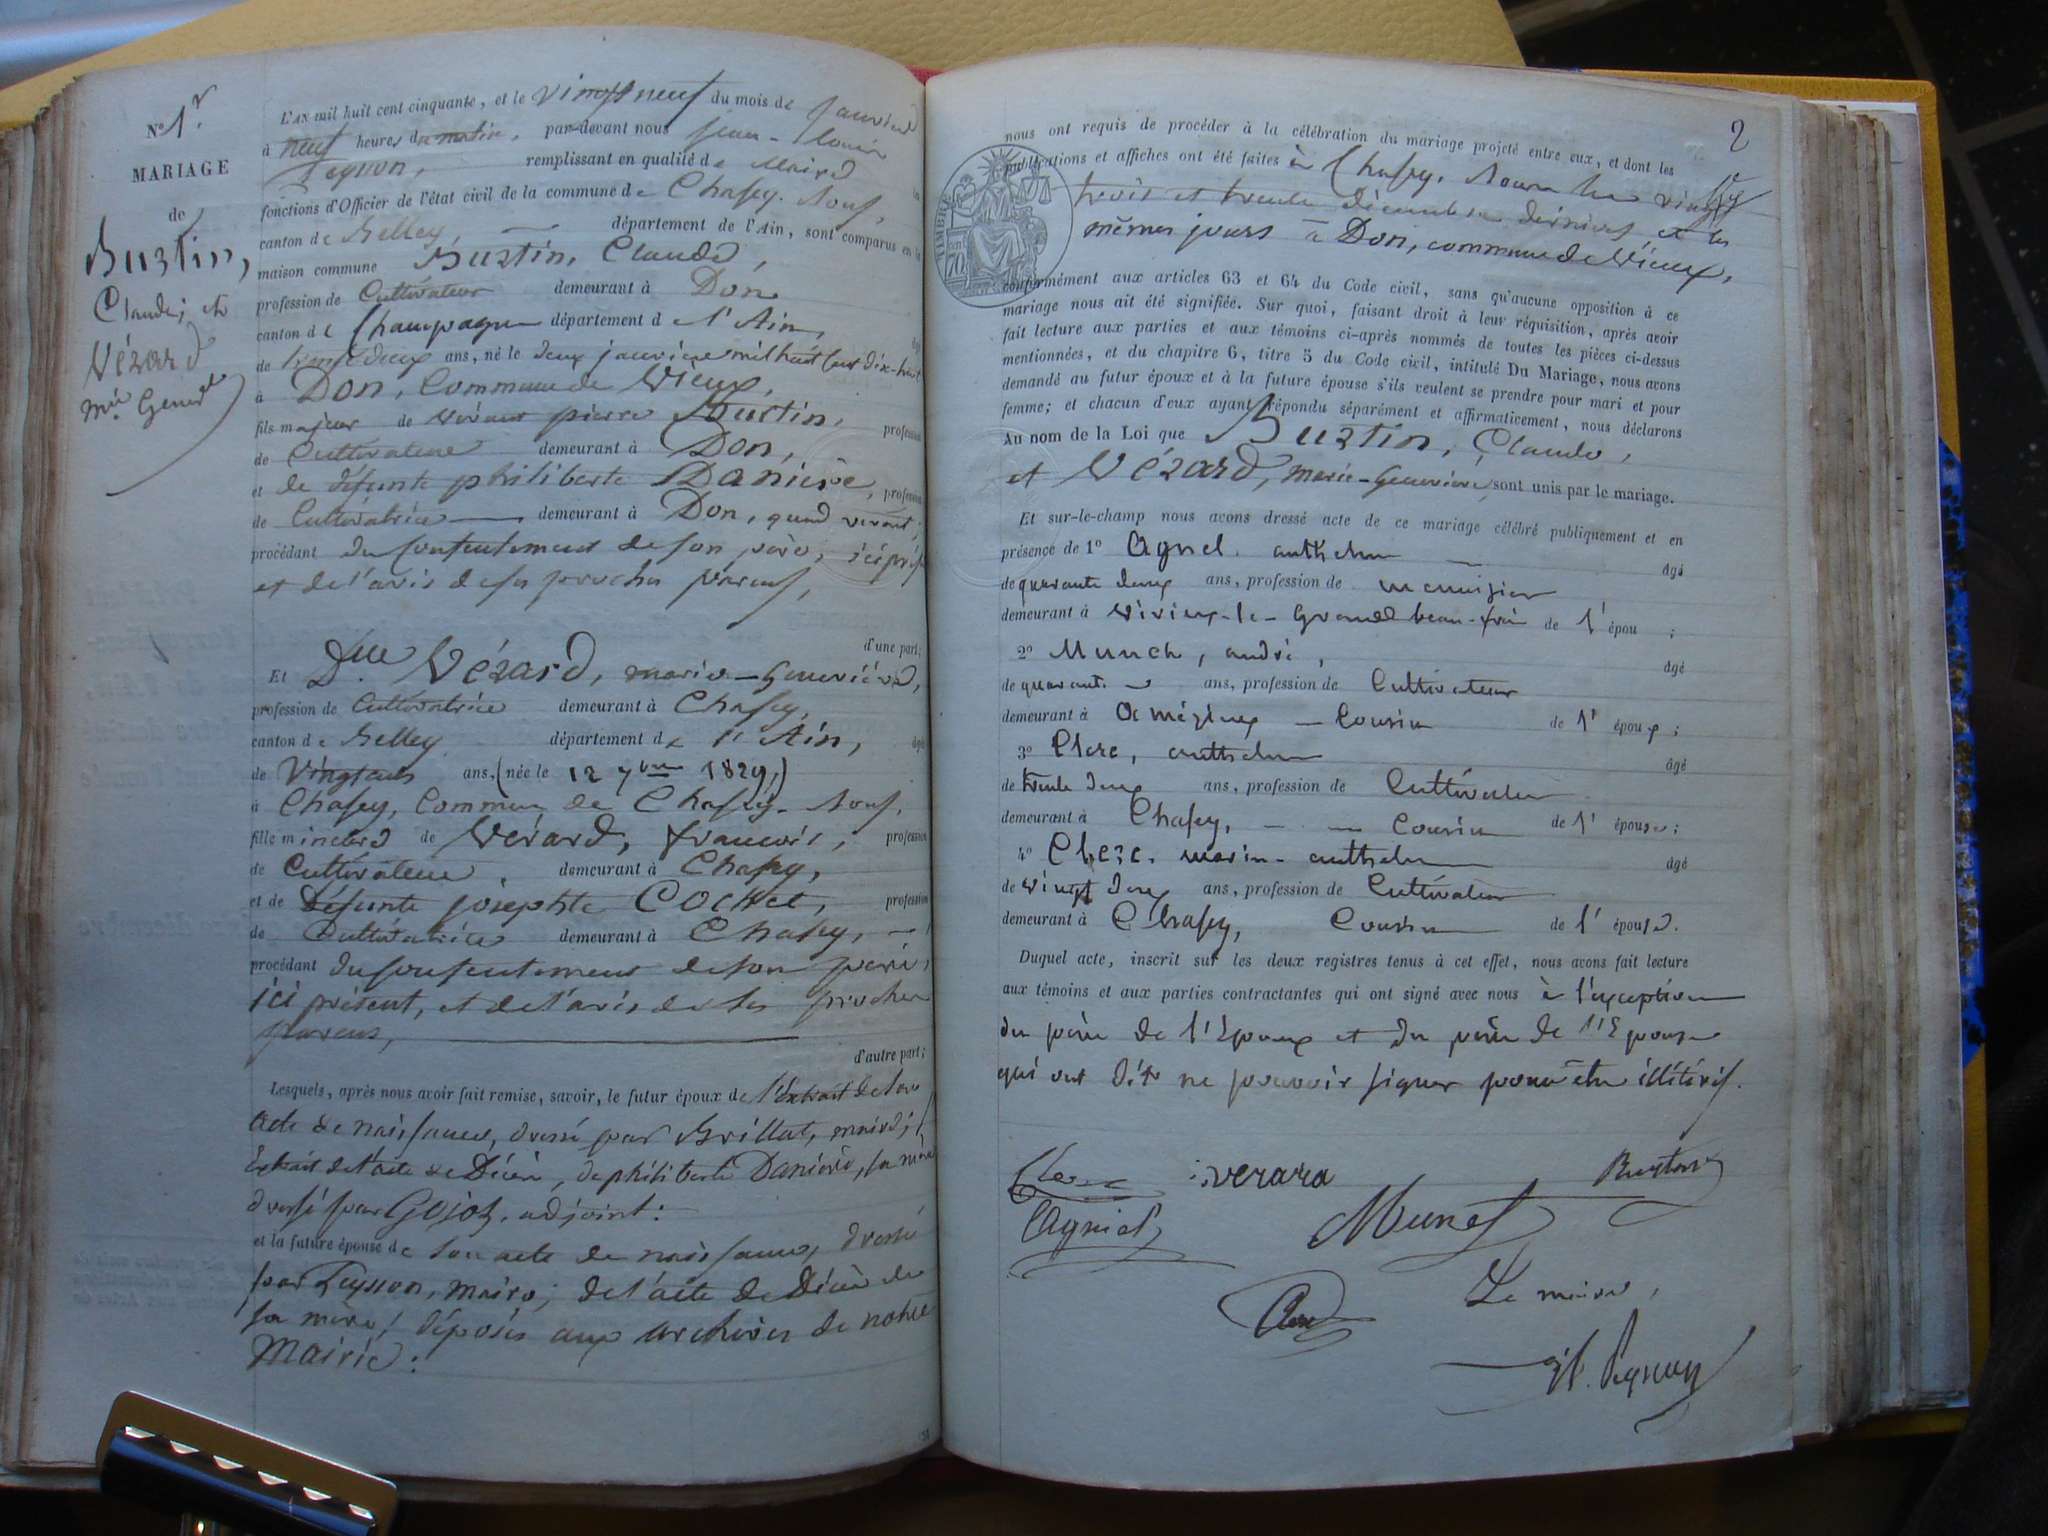 N° 1er
MARIAGE
de
Buztin,
Claude, et
Vézard
Mie Genev
L'AN mil huit cent cinquante, et le vingt neuf du mois de janvier
à neuf heures du matin, par-devant nous jean-louis
Peynon, remplissant en qualité de Maire les
fonctions d'Officier de l'état civil de la commune de Chasey-Nous,
canton de Belley département de l'Ain, sont comparus en la
maison commune Buztin, Claude,
profession de Cultivateur demeurant à Don
canton de Champagne département de l'Ain, âgé
de trente deux ans, né le deux janvier mil huit cent dix-huit
à Don, Commune de Vieux,
fils majeur de vivant pierre Buztin, profession
de Cultivateur demeurant à Don,
et de défunte philiberte Danière, profession
de Cultivatrice demeurant à Don, quand vivait,
procédant du consentement de son père, ici prést
et de l'avis de ses proches parens,
d'une part;
Et Dlle Vézard, marie-Geneviève,
profession de Cultivatrice demeurant à Chasey,
canton de Belley département de l'Ain, âgé
de Vingt ans, (née le 12 7bre 1829,)
à Chasey, Commune de Chasey-Nous,
fille mineure de Vérard, françois, profession
de Cultivateur, demeurant à Chasey,
et de Défunte josephte Cochet, profession
de Cultivatrice demeurant à Chasey,
procédant du consentement de son père,
ici présent, et de l'avis de ses proches
parens,
d'autre part;
Lesquels, après nous avoir fait remise, savoir, le futur époux de l'extrait de son
acte de naissance, dressé par Brillat, maire; l'
Extrait de l'acte de Décès, de philiberte Danière, sa mère
dressé par Gojoz, adjoint:
et la future épouse de son acte de naissance, dressé
par Peysson, maire; de l'acte de Décès de
sa mère, déposés aux archives de notre
Mairie:
2
nous ont requis de procéder à la célébration du mariage projeté entre eux, et dont les
publications et affiches ont été faites à Chasey-Nous les vingt
trois et trente décembre derniers et les
mêmes jours à Don, commune de Vieux,
TIMBRE
70
conformément aux articles 63 et 64 du Code civil, sans qu'aucune opposition à ce
mariage nous ait été signifiée. Sur quoi, faisant droit à leur réquisition, après avoir
fait lecture aux parties et aux témoins ci-après nommés de toutes les pièces ci-dessus
mentionnées, et du chapitre 6, titre 5 du Code civil, intitulé Du Mariage, nous avons
demandé au futur époux et à la future épouse s'ils veulent se prendre pour mari et pour
femme; et chacun d'eux ayant répondu séparément et affirmativement, nous déclarons
Au nom de la Loi que Buztin, Claude,
et Vézard, marie-Geneviève, sont unis par le mariage.
Et sur-le-champ nous avons dressé acte de ce mariage célébré publiquement et en
présence de 1° Agnel. anthelme âgé
de quarante deux ans, profession de menuisier
demeurant à Virieux-le-Grand beau-frère de l'épou ;
2° Munch, andré, âgé
de quarante ans, profession de Cultivateur
demeurant à Cousin de l'époux ;
3° Clerc, anthelme âgé
de trente deux ans, profession de Cultivateur
demeurant à Chasey, Cousin de l'épouse ;
4° Clerc. marin-anthelme âgé
de vingt deux ans, profession de Cultivateur
demeurant à Chasey, Cousin de l'épouse.
Duquel acte, inscrit sur les deux registres tenus à cet effet, nous avons fait lecture
aux témoins et aux parties contractantes qui ont signé avec nous à l'exception
du père de l'Epoux et du père de l'Epouse
qui ont dit ne pouvoir signer pour être illitérés.
Clerc verara Buztin
Agniel Munch
Clerc Le maire,
Jl. Peynon